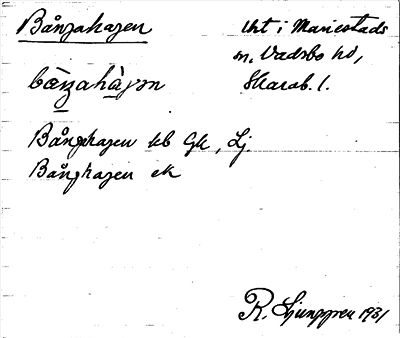 Bångahagen
Urt i Mariestads
m. Vadsbo hd,
Skarab. l.
bȧ̀ŋahàgən
Bånghagen kb Gk, Lj.
Bånghagen ek
R. Ljunggren 1931